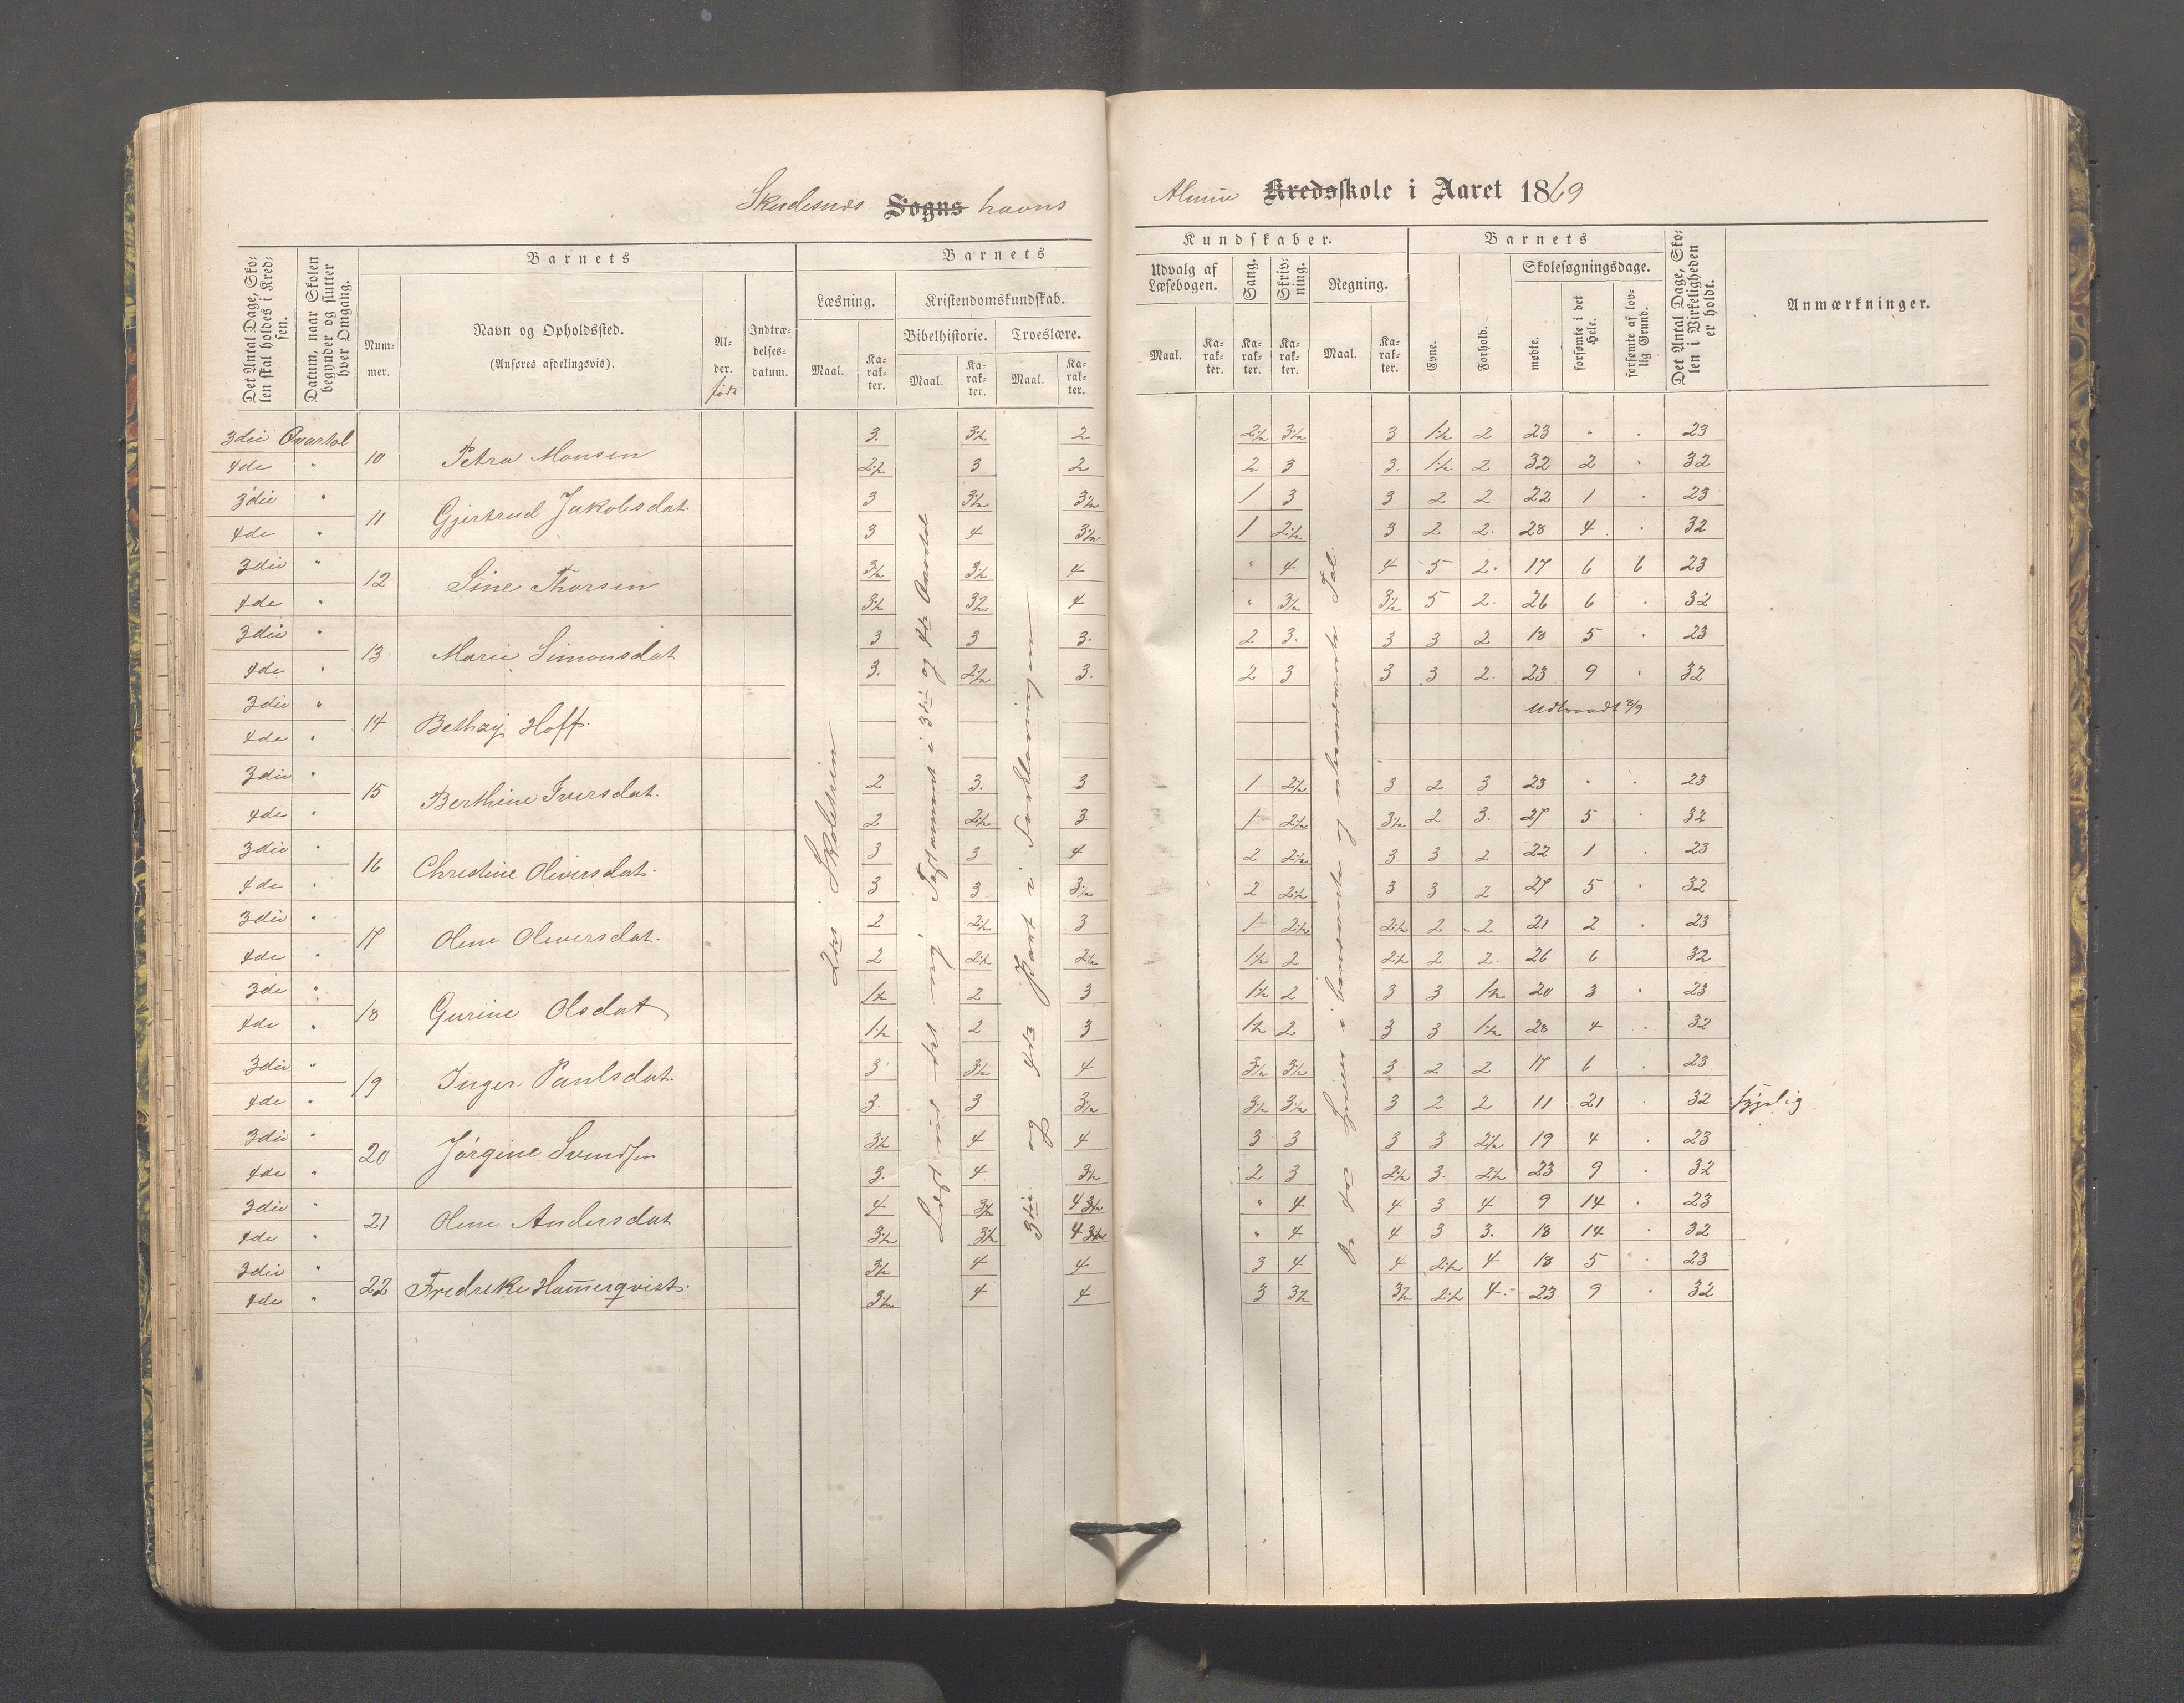 Skudesnæs Sogns havns
Almue Kredsskole i Aaret 1869
Det Antal Dage, Skolen skal holdes i Kredsen.
Datum, naar Skolen begynder og slutter hver Omgang.
Barnets
Nummer.
Navn og Opholdssted.
(Anføres afdelingsvis).
Alder.
født
Indtrædelsesdatum.
Barnets
Læsning.
Maal.
Karakter.
Kristendomskundskab.
Bibelhistorie.
Maal.
Karakter.
Troeslære.
Maal.
Karakter.
Kundskaber.
Udvalg af Læsebogen.
Maal.
Karakter.
Sang.
Karakter.
Skrivning.
Karakter.
Regning.
Maal.
Karakter.
Barnets
Evne.
Forhold.
Skolesøgningsdage.
mødte.
forsømte i det Hele.
forsømte af lovlig Grund.
Det Antal Dage, Skolen i Virkeligheden er holdt.
Anmærkninger.
3die Qvartal 10 Petra Monsen 3. 3½ 2 2½ 3½ 3 1½ 2 23 " . 23
4de " 2½ 3 2 2 3 3. 1½ 2 32 2 . 32
3die " 11 Gjertrud Jakobsdat. 3 3½ 3½ 1 3 3 2 2 22 1 . 23
4de " 3 4 3½ 1 2½ 3 2 2. 28 4 . 32
3die " 12 Sine Thorsen 3½ 3½ 4 " 4 4 5 2. 17 6 6 23
4de " 3½ 3½ 4 " 3½ 3½ 5 2. 26 6 . 32
3die " 13 Marie Simonsdat 3 3 3. 2 3. 3 3 2 18 5 . 23
4de " 3. 2½ 3. 2 3 3 3 2. 23 9 . 32
3die " 14 Bethzy Hoff. Udtraadt 8/9
4de "
3die " 15 Berthine Iversdat. 2 3. 3 1 2½ 3 2 3 23 . . 23
4de " 2 2½ 3. 1 2½ 3½ 2 3. 27 5 . 32
3die " 16 Christine Oliversdat. 3 3 4 2 2½ 3 3 2 22 1 . 23
4de " 3 3 3½ 2 2½ 3 3 2 27 5 . 32
3die " 17 Olene Oliversdat. 2 2½ 3 1 2½ 2½ 2 2 21 2 . 23
4de " 2 2½ 2½ 1½ 2 2½ 2 2. 26 6 32
3de " 18 Gurine Olsdat 1½ 2 3 1½ 2 3 3 1½ 20 3 . 23
4de " 1½ 2 3 1½ 2 3 3 1½ 28 4 . 32
3die " 19 Inger Paulsdat. 3 3½ 4 3½ 3½ 3 2 2 17 6 . 23
4de " 3. 3 3½ 3½ 3½ 3 2 2 11 21 . 32 sygelig
3die " 20 Jørgine Svendsen 3½ 4 4 3 3 3 3 2½ 19 4 . 23
4de " 3. 4 3½ 2 3 2½ 3. 2½ 23 9 . 32
3die " 21 Olene Andersdat 4 3½ 4 3½ " 4 4 3 4 9 14 . 23
4de " 3½ 3½ 4 3½ " 4 4 3 3. 18 14 . 32
3die " 22 Fredreke Hamerqvist. 3½ 4 4 3 4 4 2½ 4 18 5 . 23
4de " 3½ 4 4 3 3½ 3½ 2½ 4. 23 9 . 32
2det Skoletrin
Læst ud det ny Testamente i 3die og 4de Qvartal
3die og 4de Part i Forklaringen